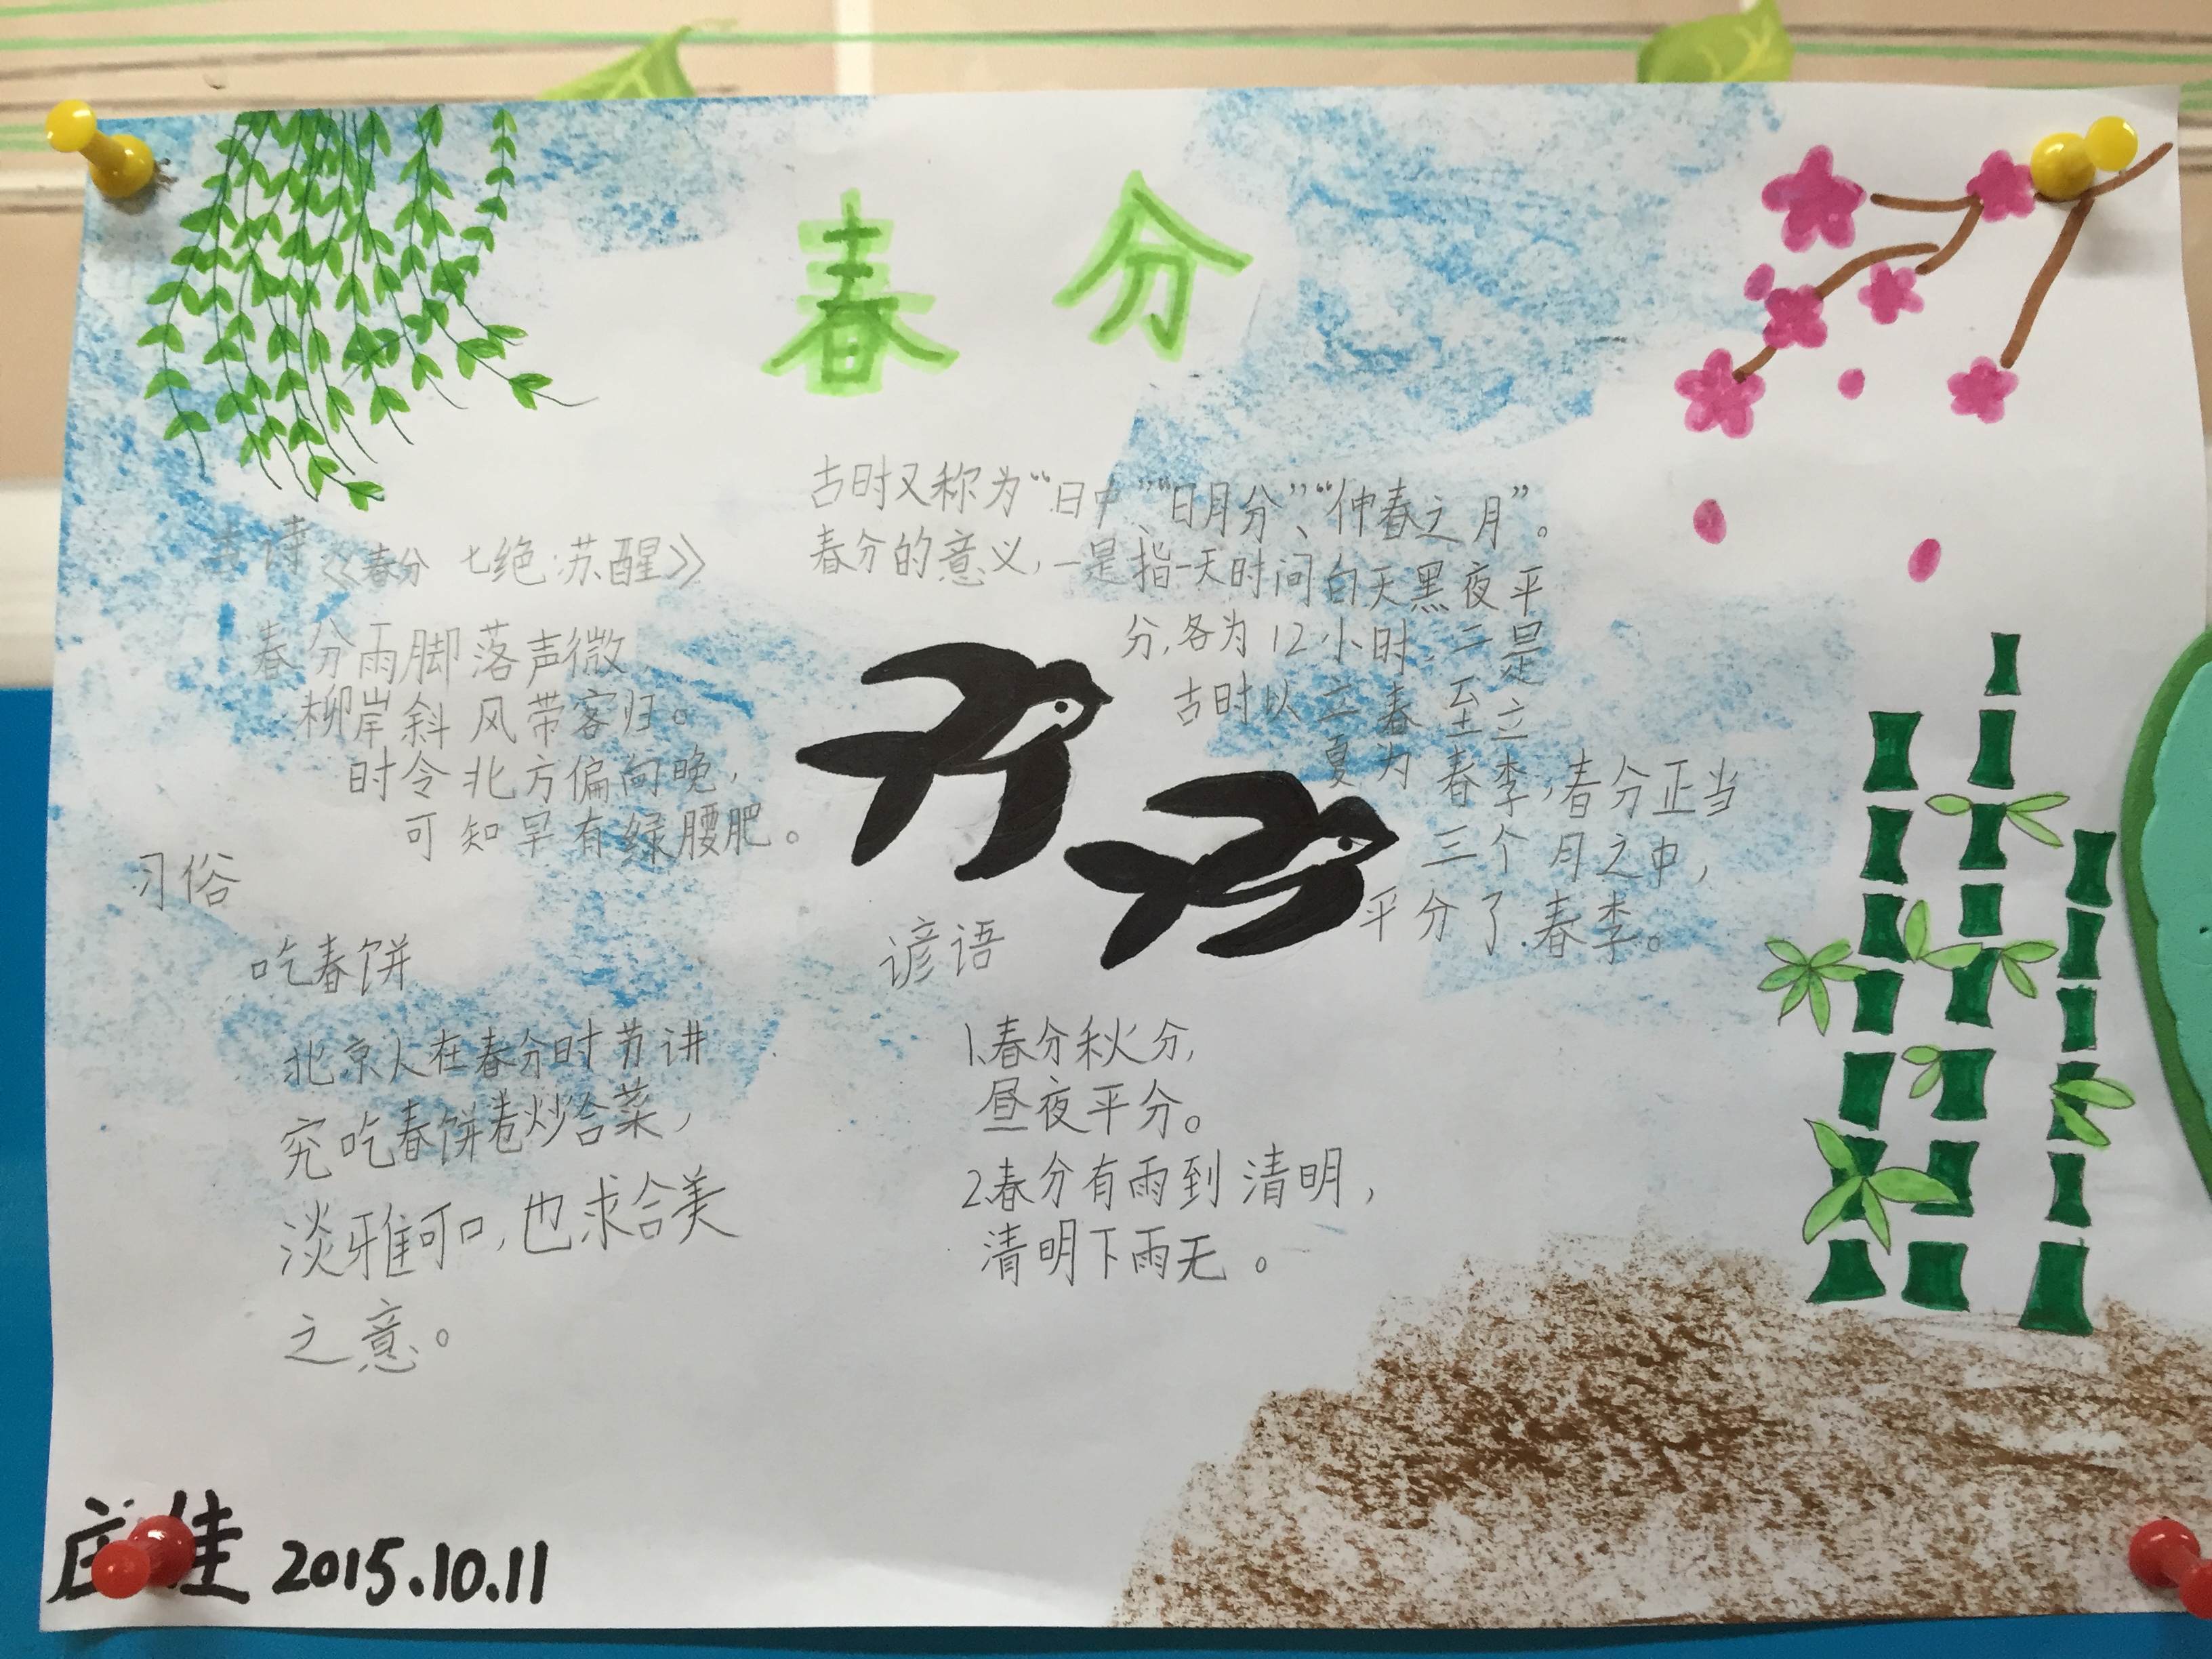 春分
古时又称为“日中”、“日月分”、“仲春之月”。
春分的意义，一是指一天时间白天黑夜平
分，各为12小时；二是
古时以立春至立
夏为春季，春分正当
三个月之中，
平分了春季。
古诗《春分 七绝·苏醒》
春分雨脚落声微，
柳岸斜风带客归。
时令北方偏向晚，
可知早有绿腰肥。
习俗
吃春饼
北京人在春分时节讲
究吃春饼卷炒合菜，
淡雅可口，也求合美
之意。
谚语
1.春分秋分，
昼夜平分。
2.春分有雨到清明，
清明下雨无。
2015.10.11